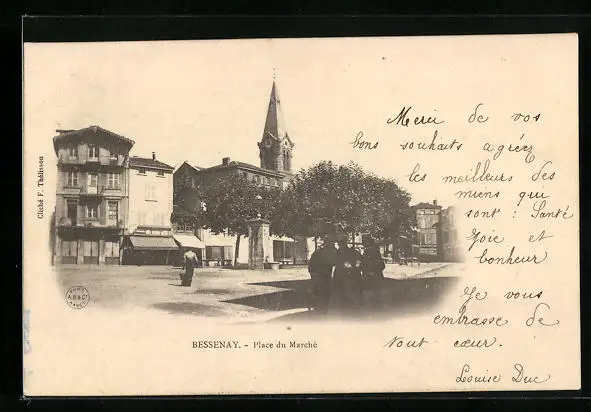 Merci de vos
bons souhaits agréez
les meilleurs des
miens qui
sont : Santé
Joie et
bonheur.
Je vous
embrasse de
tout cœur.
Louise Duc
Cliché F. Thélisson
BESSENAY. - Place du Marché